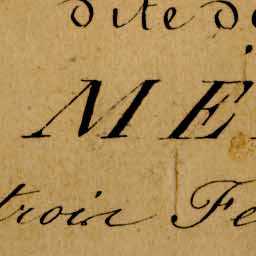 dite de
ME
troir Fe